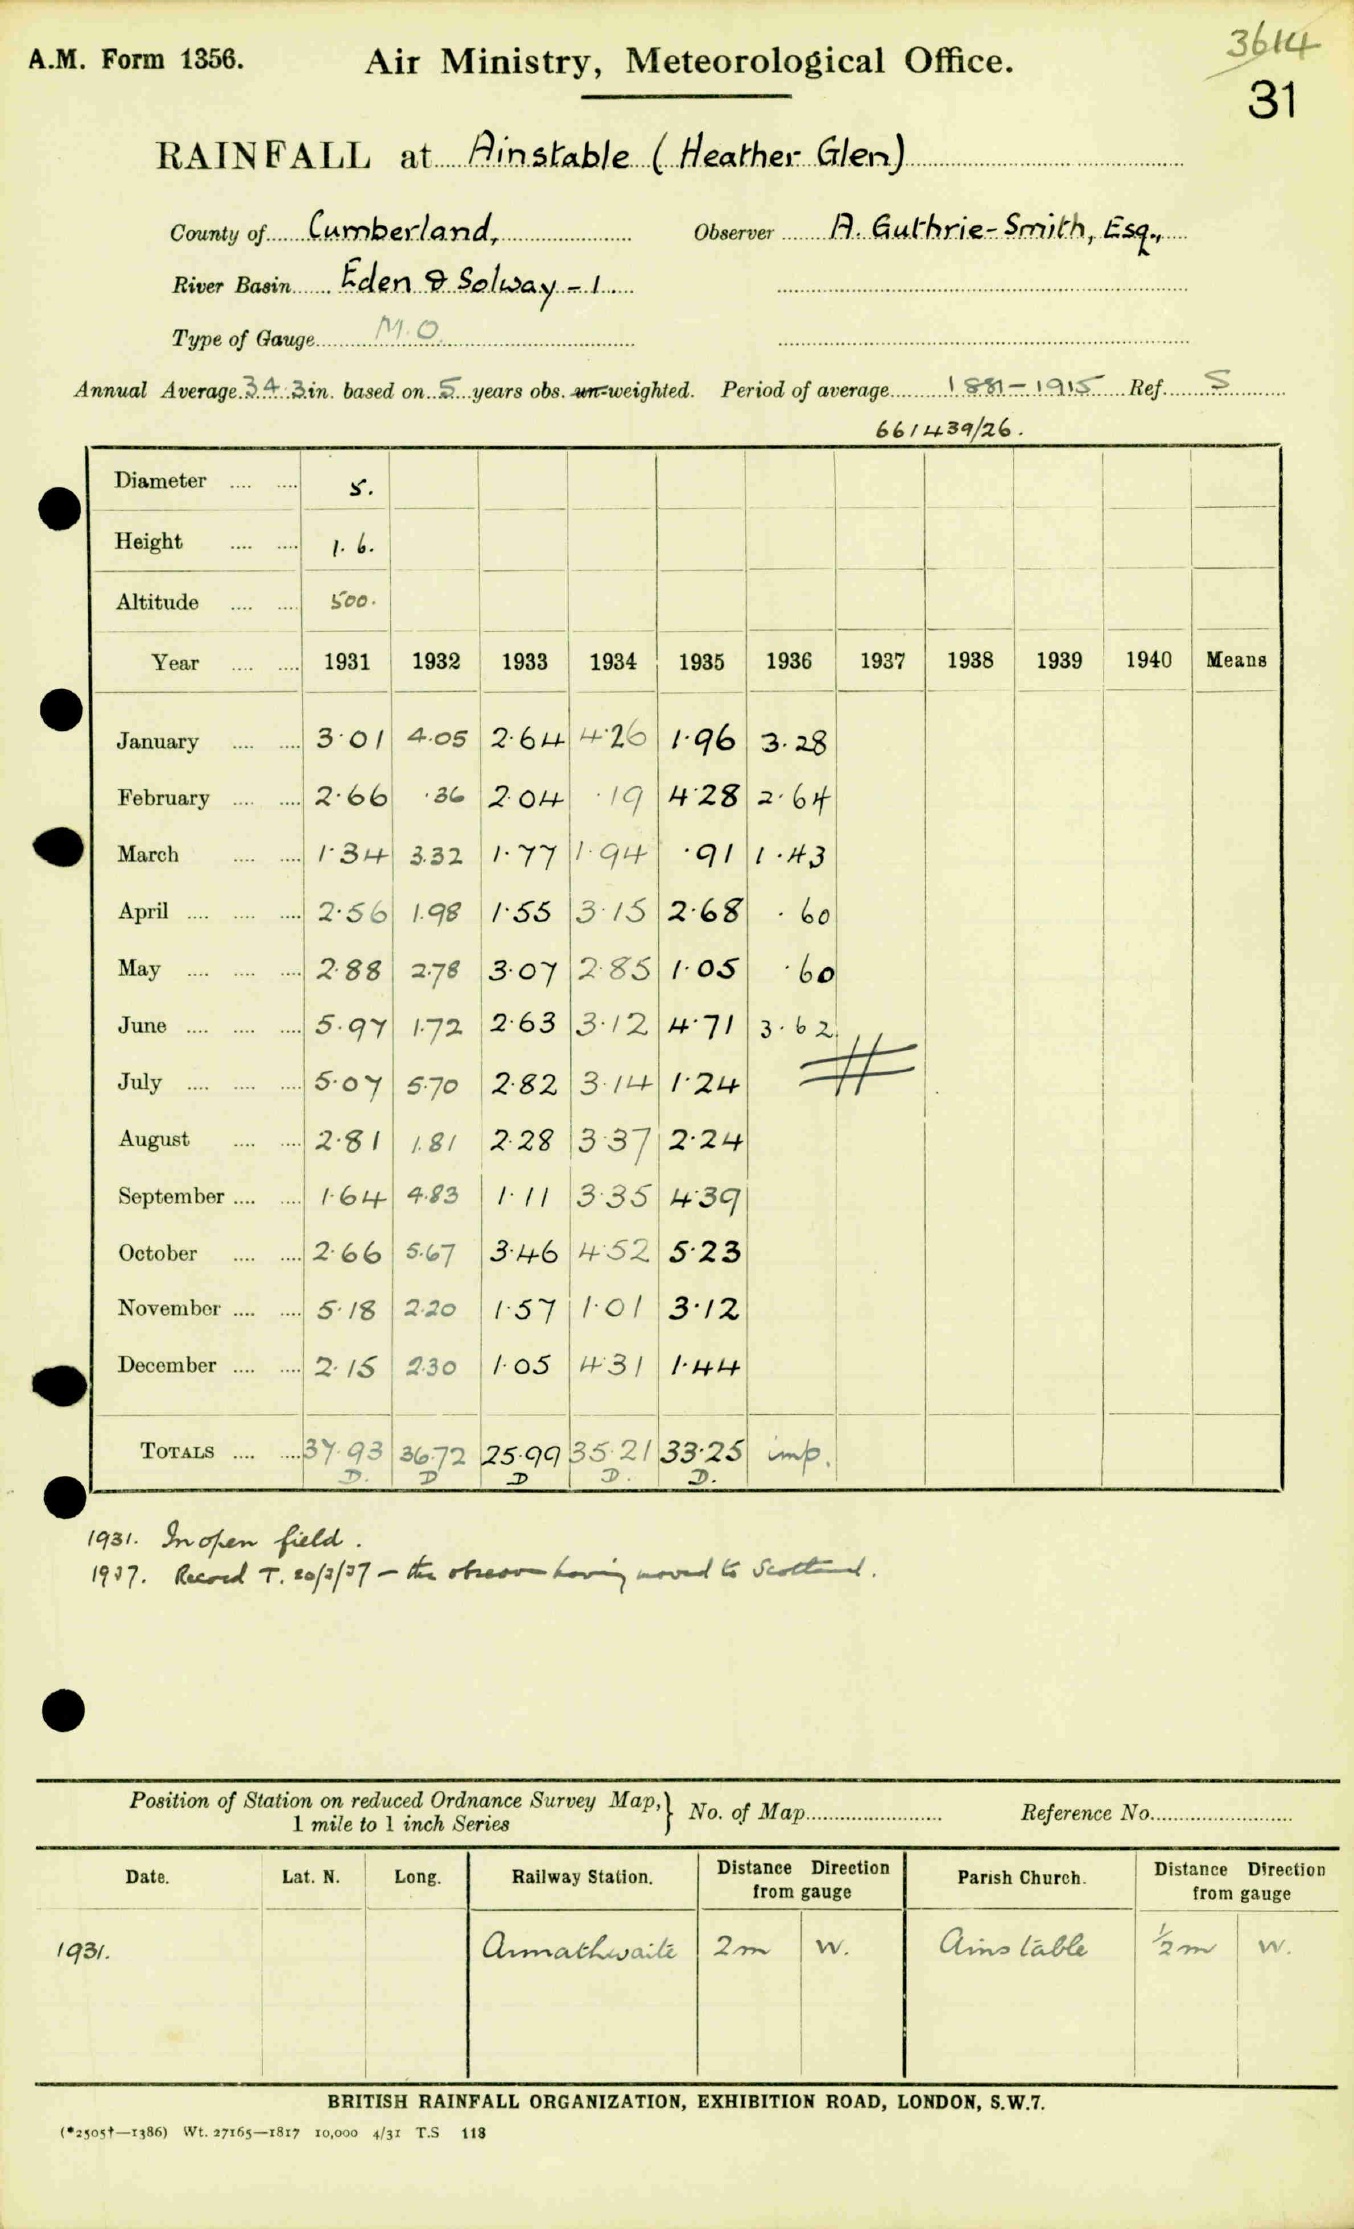 3614
A.M. Form 1356.
Air Ministry, Meteorological Office.
31
RAINFALL at Ainstable (Heather Glen)
County of Cumberland, Observer A. Guthrie-Smith, Esq.,
River Basin Eden & Solway - 1
Type of Gauge M.O.
Annual Average 34.3 in. based on 5 years obs. un-weighted. Period of average 1881-1915 Ref. S
661439/26.
Diameter 5.
Height 1.6.
Altitude 500.
Year 1931 1932 1933 1934 1935 1936 1937 1938 1939 1940 Means
January 3.01 4.05 2.64 4.26 1.96 3.28
February 2.66 .36 2.04 .19 4.28 2.64
March 1.34 3.32 1.77 1.94 .91 1.43
April 2.56 1.98 1.55 3.15 2.68 .60
May 2.88 2.78 3.07 2.85 1.05 .60
June 5.97 1.72 2.63 3.12 4.71 3.62
July 5.07 5.70 2.82 3.14 1.24
August 2.81 1.81 2.28 3.37 2.24
September 1.64 4.83 1.11 3.35 4.39
October 2.66 5.67 3.46 4.52 5.23
November 5.18 2.20 1.57 1.01 3.12
December 2.15 2.30 1.05 4.31 1.44
TOTALS 37.93 36.72 25.99 35.21 33.25 imp.
D. D D D. D.
1931. In open field.
1937. Record T. 20/2/37 - the observer having moved to Scotland.
Position of Station on reduced Ordnance Survey Map, } No. of Map Reference No.
1 mile to 1 inch Series
Date. Lat. N. Long. Railway Station. Distance Direction from gauge Parish Church. Distance Direction from gauge
1931. Armathwaite 2m W. Ainstable ½m W.
BRITISH RAINFALL ORGANIZATION, EXHIBITION ROAD, LONDON, S.W.7.
(*2505†—1386) Wt. 27165—1817 10,000 4/31 T.S 118